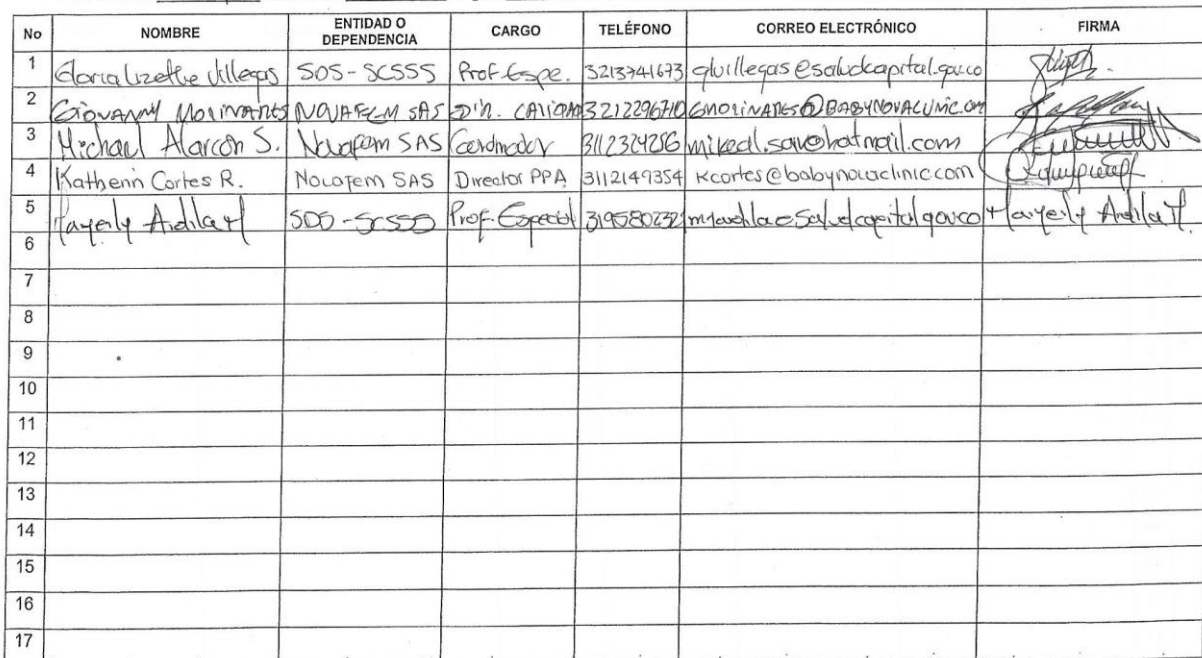 No NOMBRE ENTIDAD O DEPENDENCIA CARGO TELÉFONO CORREO ELECTRÓNICO FIRMA
1 Gloria Lizethe Villegas SDS-SCSSS Prof-Espe. 3213741673 glvillegas@saludcapital.gov.co
2 Giovanny MOLINARES NOVAFEM SAS Dir. 3212296710 GMOLINARES@BABYNOVACLINIC.com
3 Michael Alarcón S. Novafem SAS Coordinador 3112324256 mikeal.sav@hotmail.com
4 Katherin Cortes R. Novafem SAS Director PPA 3112149354 kcortes@babynovaclinic.com
5 Mayerly Ardila M SDS-SCSSS Prof-Especial 319580232 saludcapital.gov.co Mayerly Ardila M.
6
7
8
9
10
11
12
13
14
15
16
17